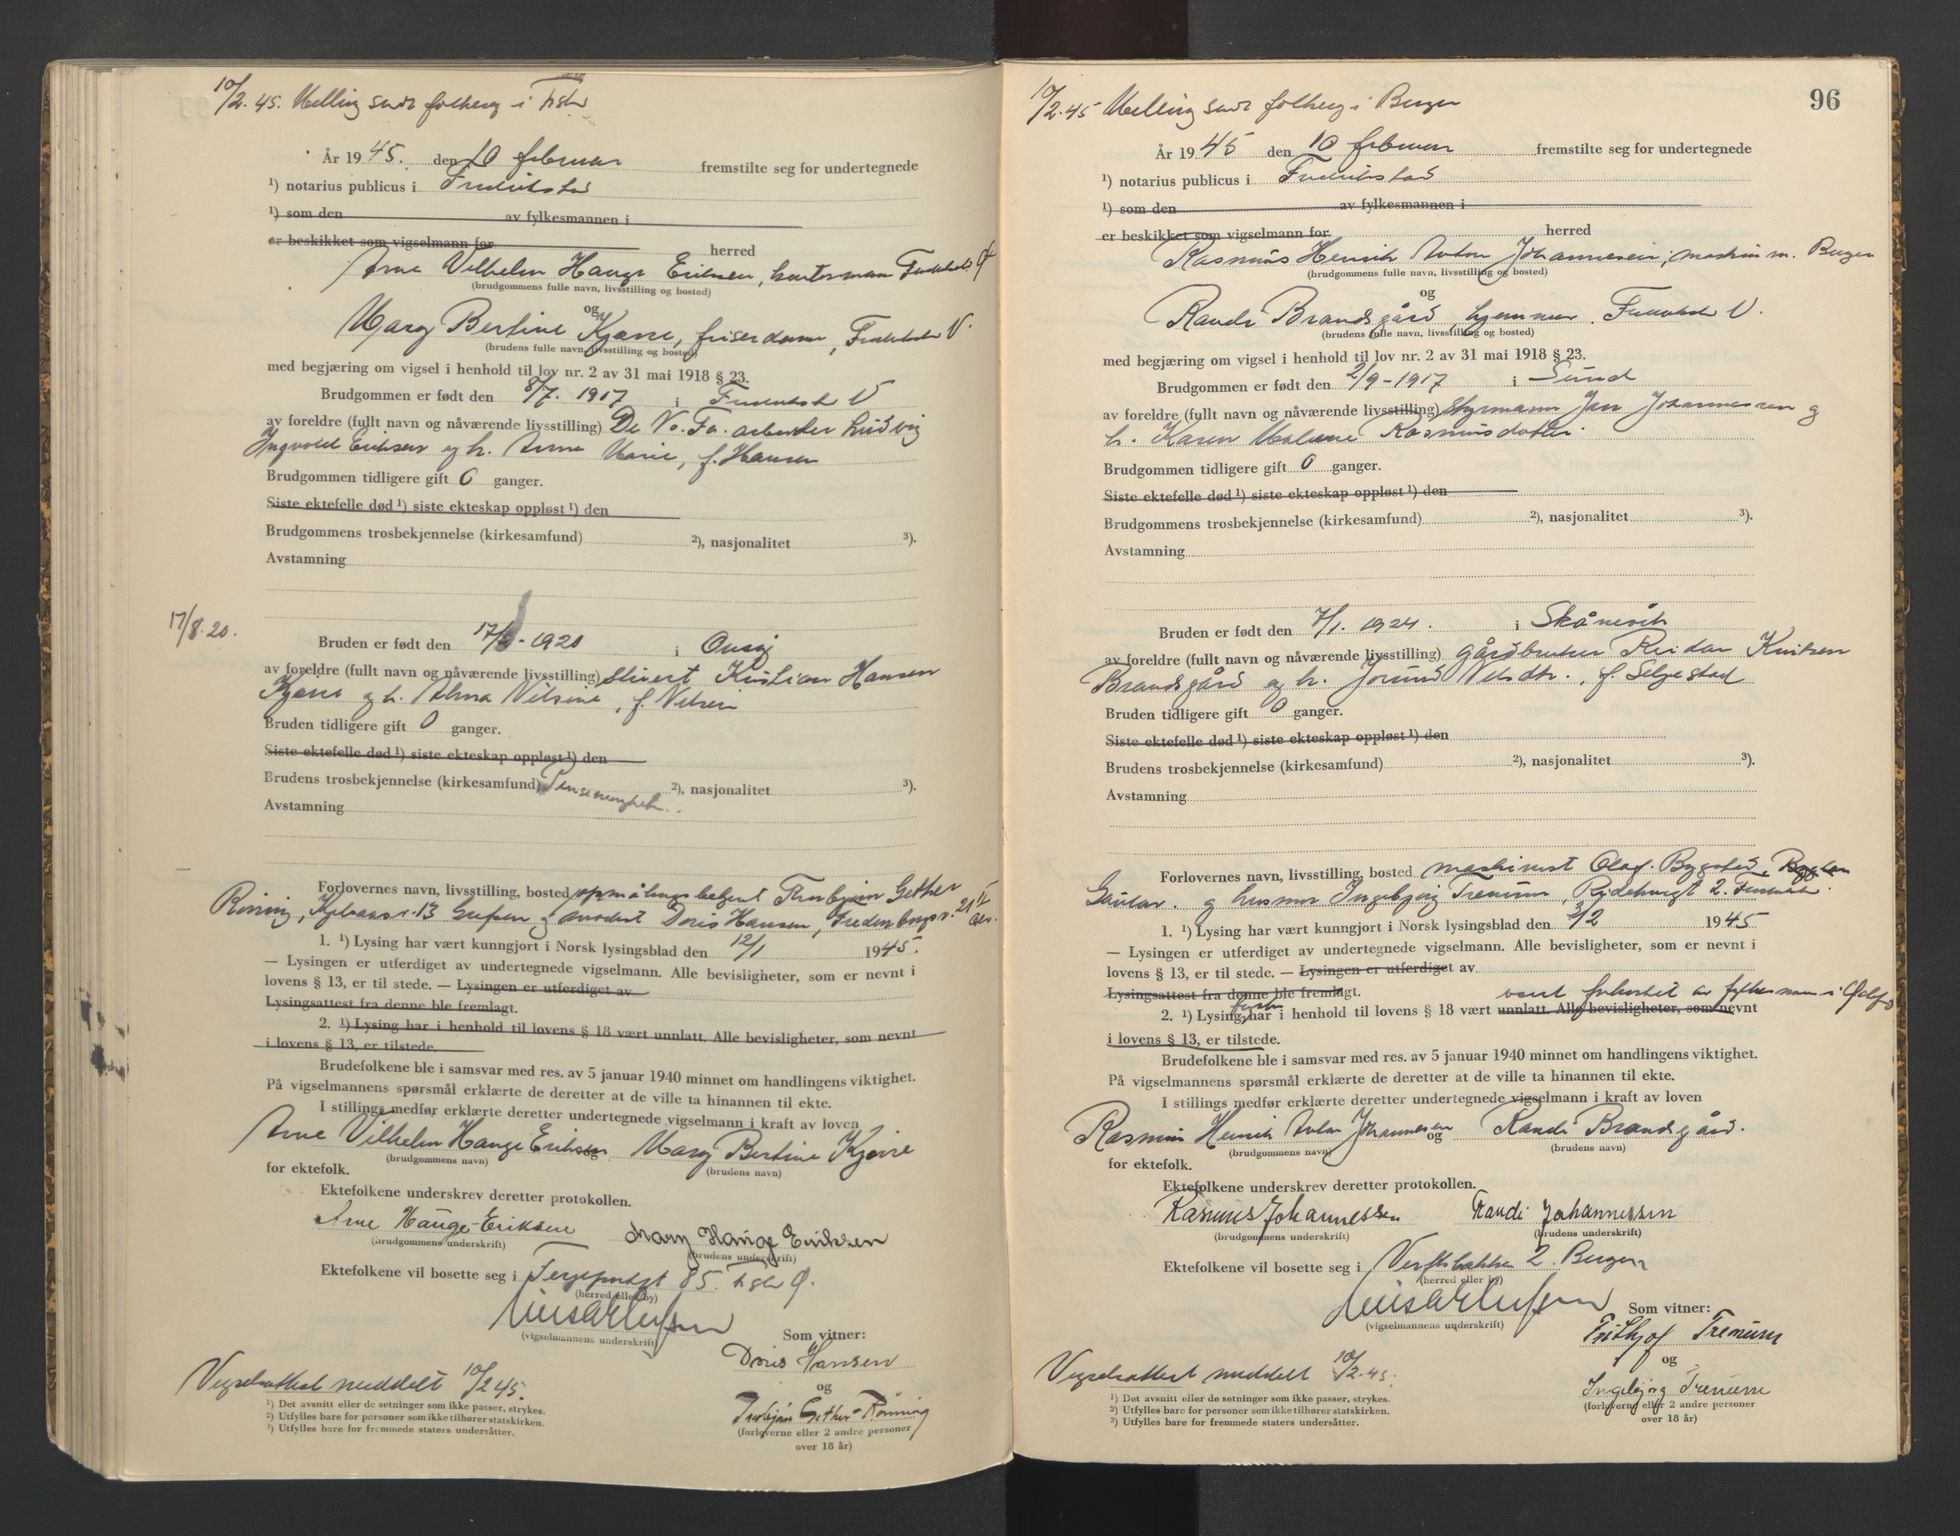 10/2.45. Melling sendt folkereg i Fstad
År 1945. den 10 februar fremstilte seg for undertegnede
¹) notarius publicus i Fredrikstad
¹) som den av fylkesmannen i
er beskikket som vigselmann for herred
Arne Vilhelm Hauge Eriksen, kontormann Fredrikstad Ø
(brudgommens fulle navn, livsstilling og bosted)
og
Mary Bertine Kjærre, friserdame, Fredrikstad V.
(brudens fulle navn, livsstilling og bosted)
med begjæring om vigsel i henhold til lov nr. 2 av 31 mai 1918 § 23.
Brudgommen er født den 8/7. 1917 i Fredrikstad V
av foreldre (fullt navn og nåværende livsstilling) De No. Fa. arbeider Ludvig
Ingvald Eriksen og h. Anna Marie, f. Hansen
Brudgommen tidligere gift 0 ganger.
Siste ektefelle død ¹) siste ekteskap oppløst ¹) den
Brudgommens trosbekjennelse (kirkesamfund) ²), nasjonalitet ³).
Avstamning
17/8.20.
Bruden er født den 17/8-1920 i Onsøy
av foreldre (fullt navn og nåværende livsstilling) Sivert Kristian Hansen
Kjærre og h. Alma Nilsine, f. Nilsen
Bruden tidligere gift 0 ganger.
Siste ektefelle død ¹) siste ekteskap oppløst ¹) den
Brudens trosbekjennelse (kirkesamfund) Pinsemenighet. ²), nasjonalitet ³).
Avstamning
Forlovernes navn, livsstilling, bosted oppmålingsbetjent Thorbjørn Gether
Rønning, 13 Gressvik og Doris Hansen, Fredensborgv. 21 II Oslo.
1. ¹) Lysing har vært kunngjort i Norsk lysingsblad den 12/1 1945.
— Lysingen er utferdiget av undertegnede vigselmann. Alle bevisligheter, som er nevnt i
lovens § 13, er til stede. — Lysingen er utferdiget av
Lysingsattest fra denne ble fremlagt.
2. ¹) Lysing har i henhold til lovens § 18 vært unnlatt. Alle bevisligheter, som nevnt
i lovens § 13, er tilstede.
Brudefolkene ble i samsvar med res. av 5 januar 1940 minnet om handlingens viktighet.
På vigselmannens spørsmål erklærte de deretter at de ville ta hinannen til ekte.
I stillings medfør erklærte deretter undertegnede vigselmann i kraft av loven
Arne Vilhelm Hauge Eriksen og Mary Bertine Kjærre
(brudgommens navn) (brudens navn)
for ektefolk.
Ektefolkene underskrev deretter protokollen.
Arne Hauge-Eriksen Mary Hauge Eriksen
(brudgommens underskrift) (brudens underskrift)
Ektefolkene vil bosette seg i 85. Fstad Ø.
(herred eller by)
(vigselmannens underskrift)
Som vitner:
Doris Hansen
og
Torbjørn Gether-Rønning
(forloverne eller 2 andre personer
over 18 år)
Vigselsattest meddelt 10/2 45.
¹) Det avsnitt eller de setninger som ikke passer, strykes.
²) Utfylles bare for personer som ikke tilhører statskirken.
³) Utfylles bare for fremmede staters undersåtter.
96
10/2.45 Melling sendt folkereg i Bergen
År 1945 den 10 februar fremstilte seg for undertegnede
¹) notarius publicus i Fredrikstad
¹) som den av fylkesmannen i
er beskikket som vigselmann for herred
Rasmus Henrik Anton Johannessen, maskinm. Bergen
(brudgommens fulle navn, livsstilling og bosted)
og
Randi Brandsgård, hjemmev. Fredrikstad V.
(brudens fulle navn, livsstilling og bosted)
med begjæring om vigsel i henhold til lov nr. 2 av 31 mai 1918 § 23.
Brudgommen er født den 2/9-1917 i Sund
av foreldre (fullt navn og nåværende livsstilling) Styrmann Jan Johannessen og
h. Karen Malene Rasmusdatter
Brudgommen tidligere gift 0 ganger.
Siste ektefelle død ¹) siste ekteskap oppløst ¹) den
Brudgommens trosbekjennelse (kirkesamfund) ²), nasjonalitet ³).
Avstamning
Bruden er født den 7/1. 1924. i Skånevik
av foreldre (fullt navn og nåværende livsstilling) gårdbruker Reidar Knutsen
Brandsgård og h. Jorund Nilsdtr., f. Seljestad
Bruden tidligere gift 0 ganger.
Siste ektefelle død ¹) siste ekteskap oppløst ¹) den
Brudens trosbekjennelse (kirkesamfund) ²), nasjonalitet ³).
Avstamning
Forlovernes navn, livsstilling, bosted maskinist Olaf Bygstad,
Gaular. og husmor Ingebjørg Trenum, 2. Fredrikstad.
1. ¹) Lysing har vært kunngjort i Norsk lysingsblad den 3/2 1945
— Lysingen er utferdiget av undertegnede vigselmann. Alle bevisligheter, som er nevnt i
lovens § 13, er til stede. — Lysingen er utferdiget av
Lysingsattest fra denne ble fremlagt. vært forkortet av fylkesmann i Østfold
2. ¹) Lysingsfristen har i henhold til lovens § 18 vært unnlatt. Alle bevisligheter, som nevnt
i lovens § 13, er tilstede.
Brudefolkene ble i samsvar med res. av 5 januar 1940 minnet om handlingens viktighet.
På vigselmannens spørsmål erklærte de deretter at de ville ta hinannen til ekte.
I stillings medfør erklærte deretter undertegnede vigselmann i kraft av loven
Rasmus Henrik Anton Johannessen og Randi Brandsgård.
(brudgommens navn) (brudens navn)
for ektefolk.
Ektefolkene underskrev deretter protokollen.
Rasmus Johannessen Randi Johannessen
(brudgommens underskrift) (brudens underskrift)
Ektefolkene vil bosette seg i Verftsbakken 2. Bergen
(herred eller by)
(vigselmannens underskrift)
Som vitner:
Fritjof Trenum
og
Ingebjørg Trenum
(forloverne eller 2 andre personer
over 18 år)
Vigselsattest meddelt 10/2.45.
¹) Det avsnitt eller de setninger som ikke passer, strykes.
²) Utfylles bare for personer som ikke tilhører statskirken.
³) Utfylles bare for fremmede staters undersåtter.